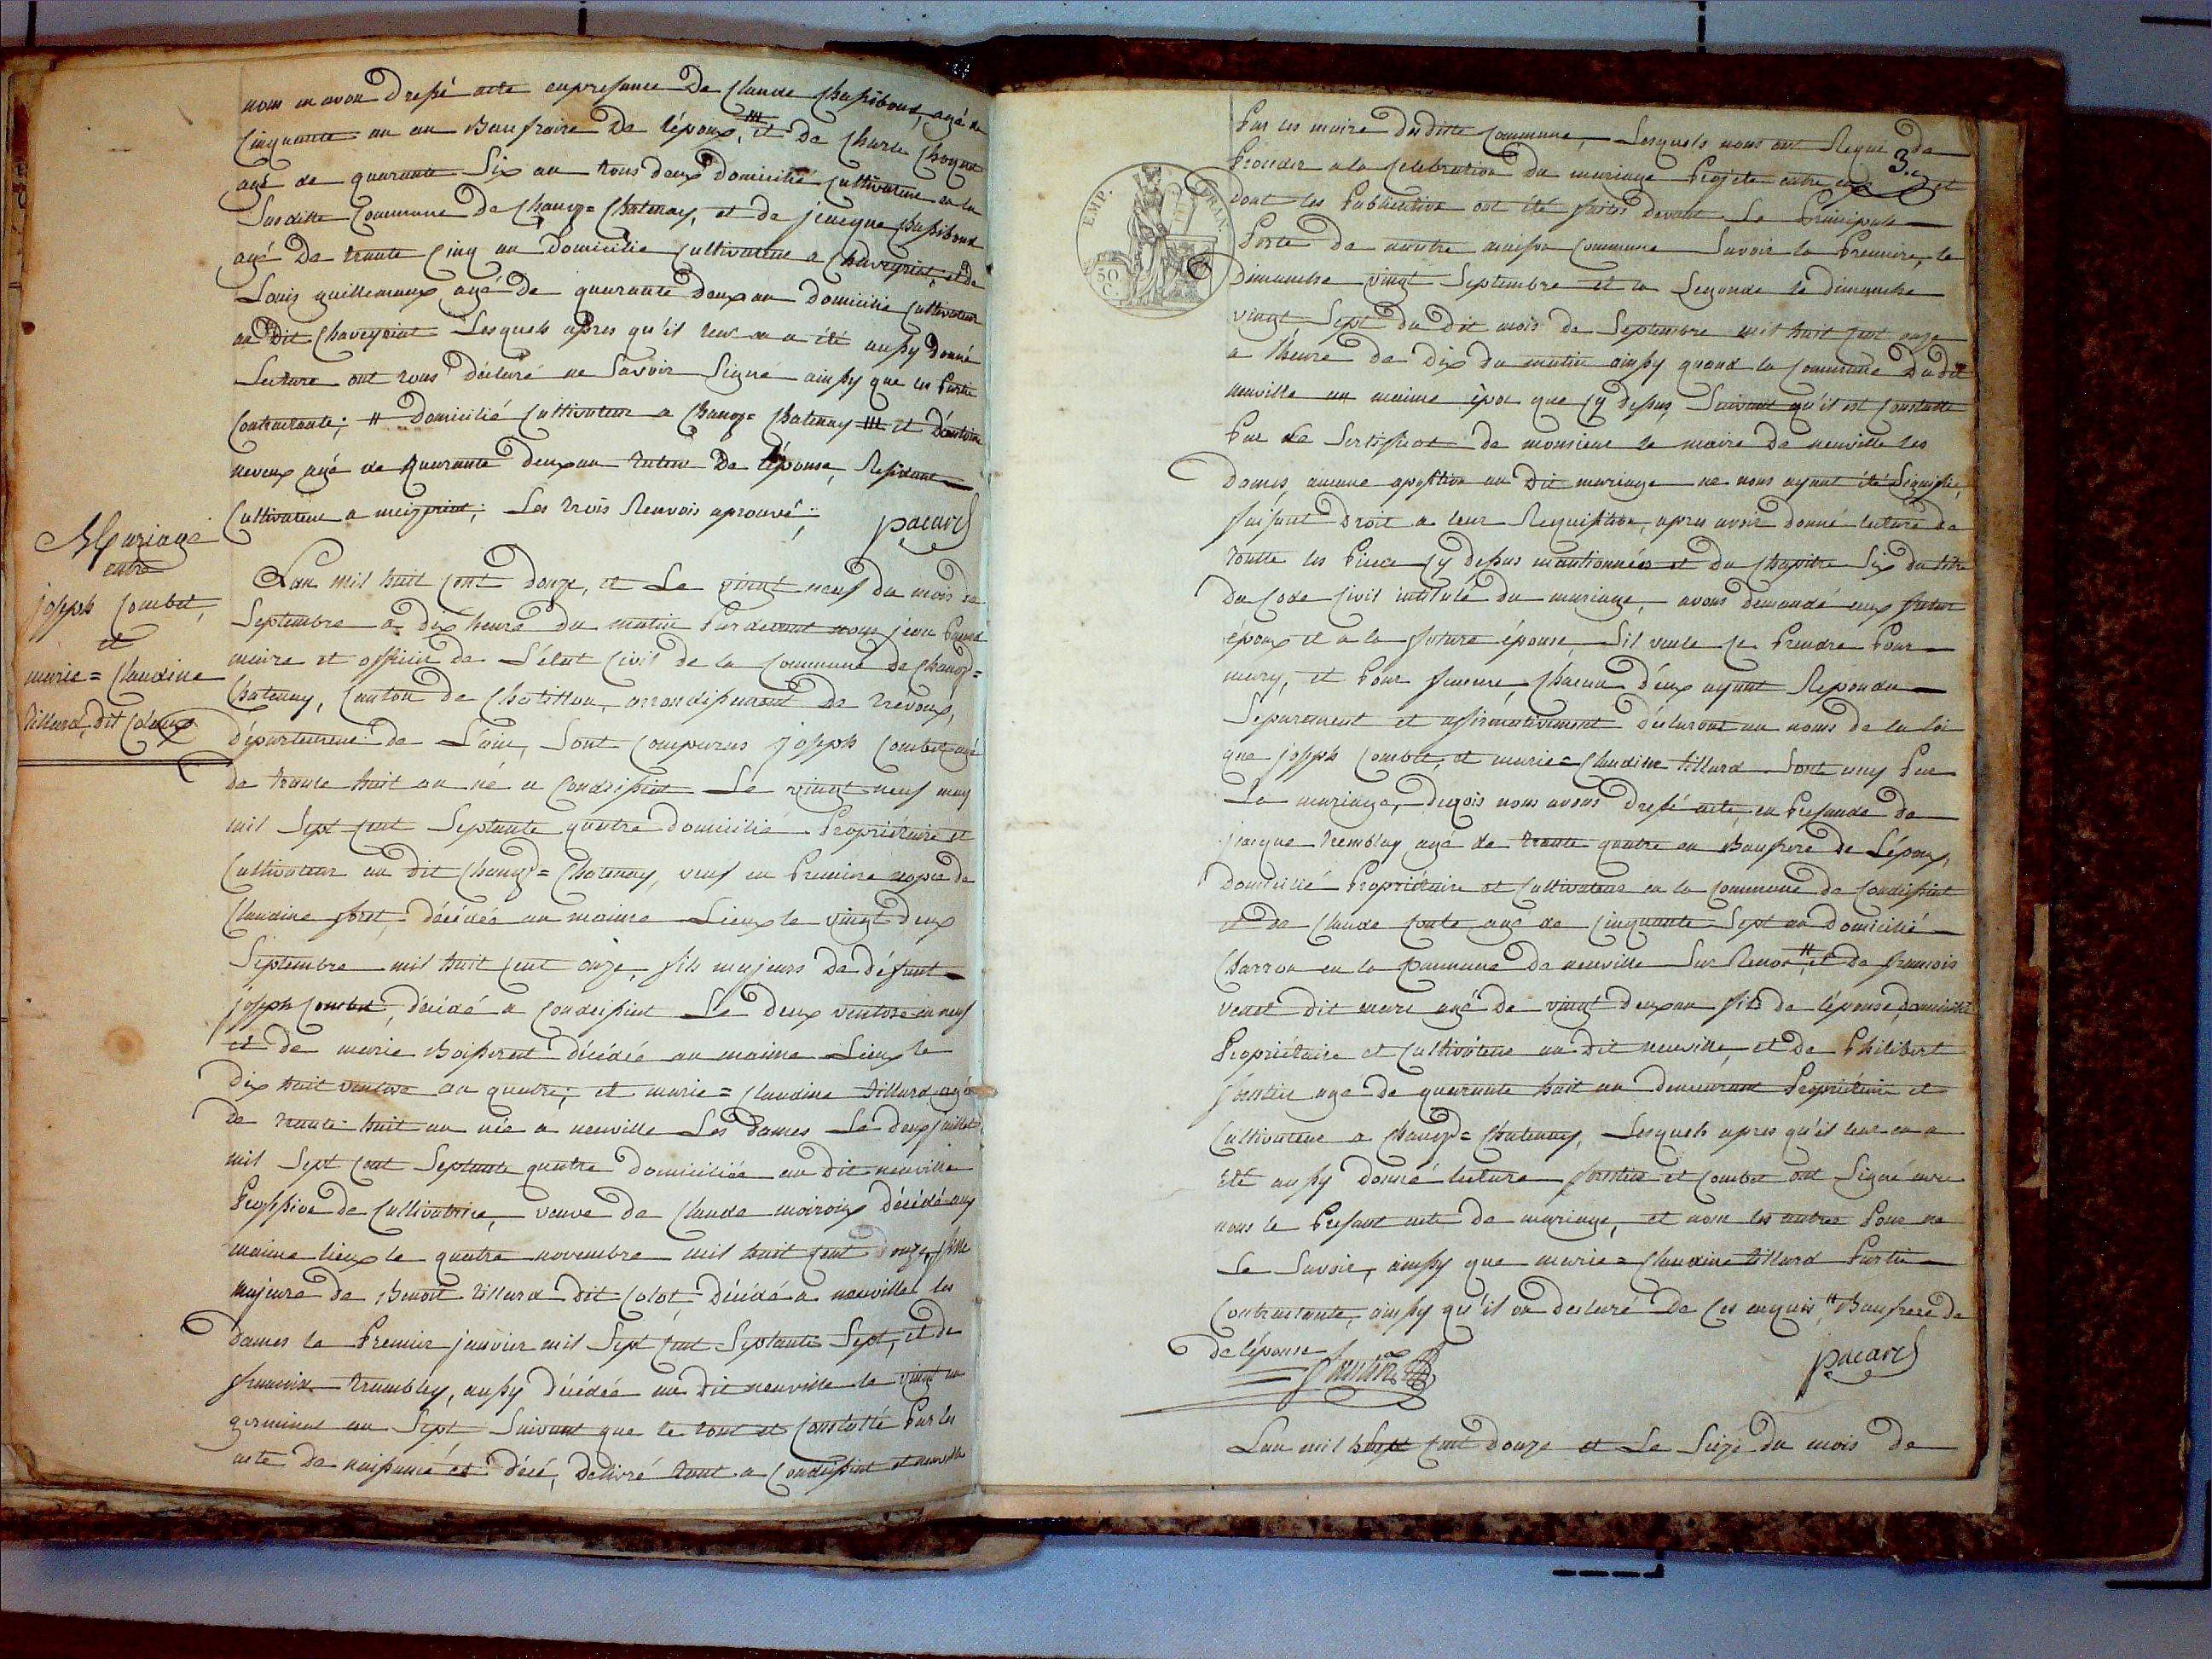 nous en avon dressé acte en presance de Claude Chassiboud, agé de
Cinquante un an Beaufraire de l'époux, et de Charle
agé de quarante Six an tous deux domicilié Cultivateur en la
Susditte Commune de Chanoz=Chatenay, et de jeacque Chassiboud
agé de trante Cinq an domicilié Cultivateur a Chaveyriat, et de
Louis guillemaux agé de quarante deux an domicilié Cultivateur
au dit Chaveyriat Lesquels apres qu'il leur en a été aussy donné
Lecture ont tous déclaré ne Savoir Signé ainssy que les Partie
Contractante; # domicilié Cultivateur a Chanoz=Chatenay et d'antoine
neveux agé de quarante deux an tuteur de l'épouse, Residant
Cultivateur a mezeriat; Les trois Renvois aprouvé;
pacard
Mariage
entre
joseph Combet,
et
marie=Claudine
tillard, dit Colaux
Lan mil huit Cent douze, et Le vingt neuf du mois de
Septembre a dix heure du matin Pardevant nous jean Pacard
maire et officié de L'état Civil de la Commune de Chanoz=
Chatenay, Canton de Chatillon, arrondissement de trevoux,
département de L'ain, Sont Comparus joseph Combet agé
de trante huit an né a Condeissiat Le vingt neuf may
mil Sept Cent Septante quatre domicilié Propriétaire et
Cultivateur au dit Chanoz=Chatenay, veuf en Premiere nopce de
Claudine foret, décédée au maime Lieux le vingt deux
Septembre mil huit Cent onze, fils majeurs de défunt
joseph Combet, décédé a Condeissiat Le deux ventose an neuf
et de marie Boisserat décédée au maime Lieux le
dix huit ventose an quatre; et marie=Claudine tillard agé
de trante huit an née a neuville Les dames Le deux juillet
mil Sept Cent Septante quatre domiciliée au dit neuville
Proffission de Cultivatrice, veuve de Claude moiroux décédé au
maime lieux le quatre novembre mil huit Cent onze, fille
majeure de Benoit tillard dit Colot décédé a neuville les
dames le Premier janvier mil Sept Cent Septante Sept, et de
francoise tremblay, aussy décédée au dit neuville le vingt un
germinal an Sept Suivant que le tout et Constatté Par les
acte de naissance et décé, delivré tout a Condeissiat et neuville
3.e
EMP. FRAN.
50 C.
Par les maire desditte Commune, Lesquels nous ont Requi de
Proceder a la Celebration du mariage Projete entre eux et
dont les Publication ont été faites devant Le Principale
Porte de nautre maison Commune Savoir la Premiere, le
dimanche vingt Septembre et la Segonde le dimanche
vingt Sept du dit mois de Septembre mil huit Cent onze
a l'heure de dix du matin ainssy quand la Commune du dit
neuville au maime époc que Cy dessus, Suivant qu'il est Constatté
Par le Sertifficat de monsieur le maire de neuville les
Dames, aucune oposition au dit mariage ne nous ayant été Signifié,
faisant droit a leur Requisition, apres avoir donné lecture de
toutte les Piece Cy dessus mantionnées et du Chapitre Six du titre
du Code Civil intitulé du mariage, avons demandé aux futur
époux et a la future épouse, S'il veule Ce Prendre Pour
mary, et Pour femme, Chacun d'eux ayant Repondu
Séparement et affirmativement déclarons au noms de la loi
que joseph Combet, et marie=Claudine tillard Sont uny Par
Le mariage, dequois nous avons dressé acte en Presance de
jacque tremblay agé de trante quatre an Beaufrere de L'époux,
domicilié Propriétaire et Cultivateur en la Commune de Condeissiat
et de Claude Conte agé de Cinquante Sept an domicilié
Charron en la Commune de neuville Sur Renon # et de francois
venet dit agé de vingt deux an fils de l'épouse, domicilié
Propriétaire et Cultivateur au dit neuville, et de Philibert
agé de quarante huit an demeurant Propriétaire et
Cultivateur a Chanoz=Chatenay, Lesquels apres qu'il leur en a
été aussy donné lecture et Combet ont Signé avec
nous le Presant acte de mariage, et non les autres Pour ne
Le Savoir, ainssy que marie=Claudine tillard Partie
Contractante, ainssy qu'il on declaré de Ces enquis, # Beaufrere de
de l'épouse
pacard
Lan mil Cent douze et Le Seize du mois de